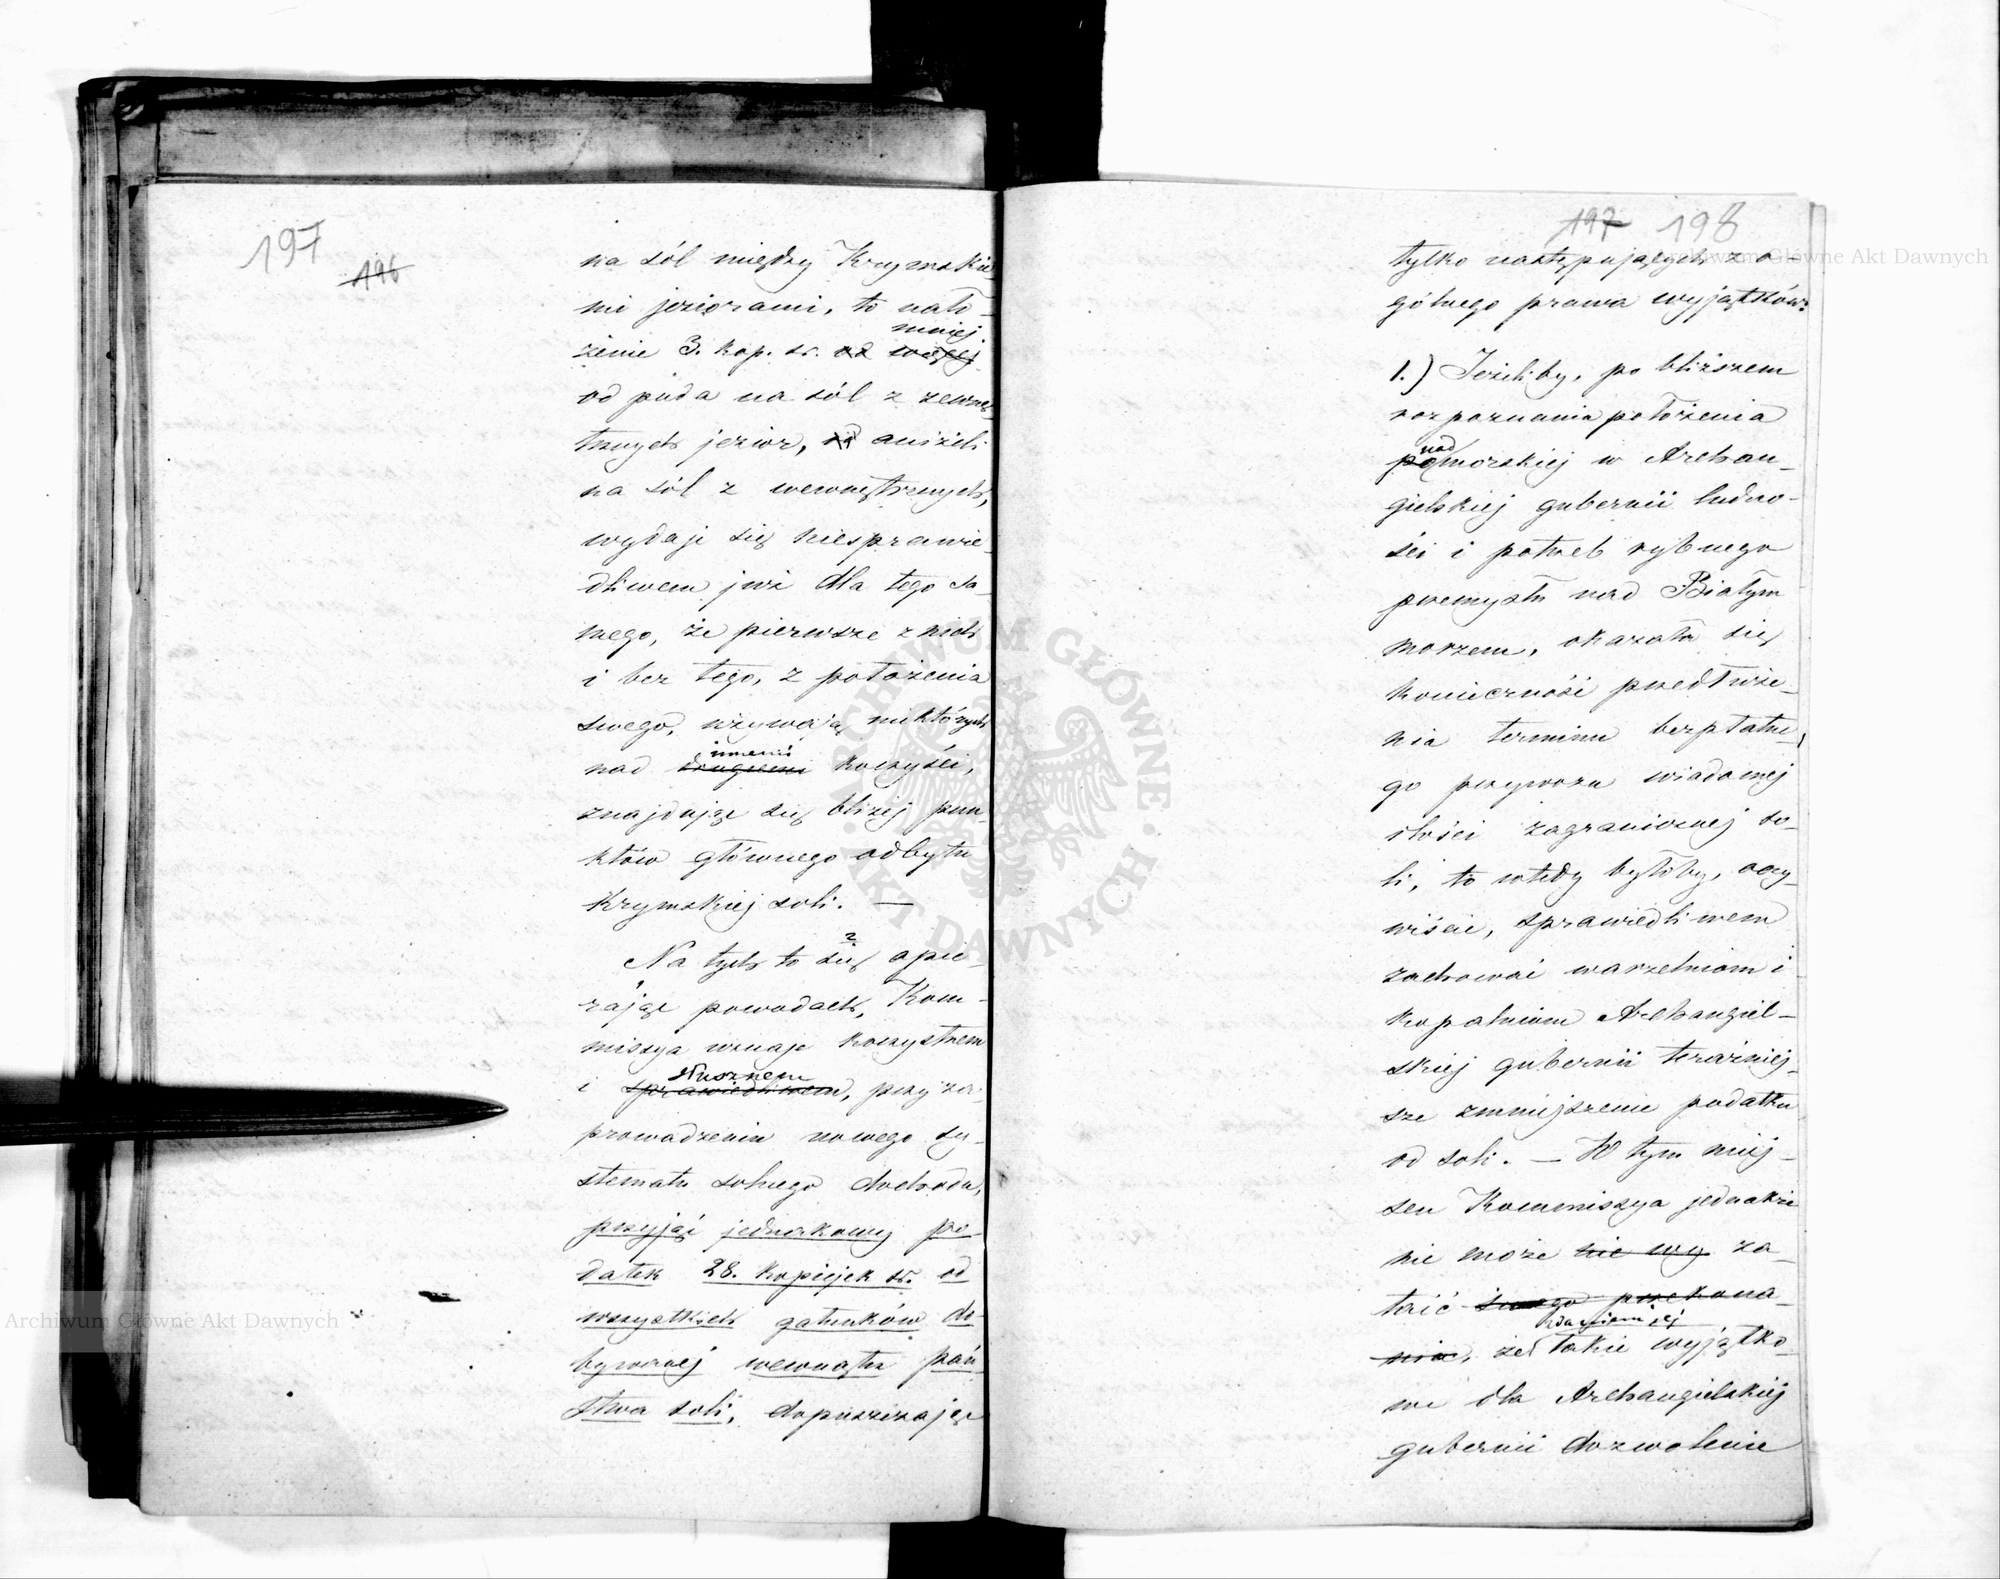 197
196
na sól między Krymskie
mi jeziorami, to nało-
mniej
żenie 3. kop. sr. od więcej
od puda na sól z zewnę
trznych jezior, od aniżeli
na sól z wewnętrznych,
wydaje się niesprawie-
dliwem już dla tego sa-
mego, że pierwsze z nich
i bez tego, z położenia
swego, używają niektórych
innemi
nad drugiemi korzyści,
znajdując się bliżej pun-
któw głównego odbytu
Krymskiej soli. —
2
Na tych to się opie-
rając powodach, Kom-
missya uznaje korzystnem
słusznem
i sprawiedliwem, przy za-
prowadzeniu nowego sy-
stematu solnego dochodu,
przyjąć jednakowy po-
datek 28. kopiejek sr. od
wszystkich gatunków do-
bywanej wewnątrz pań
stwa soli, dopuszczając
197 198
tylko następujących z o-
gólnego prawa wyjątków:
1.) Jeżeliby, po bliższem
rozpoznania położenia
nad
pomorskiej w Archan-
gielskiej gubernii ludno-
ści i potrzeb rybnego
przemysłu nad Białym
morzem, okazała się
konieczność przedłuże-
nia terminu bezpłatne-
go przywozu wiadomej
ilości zagranicznej so-
li, to wtedy byłoby, oczy-
wiście, sprawiedliwem
zachować warzelniom i
kopalniom Archangiel-
skiej gubernii teraźniej-
sze zmniejszenie podatku
od soli. — W tym miej-
scu Kommissya jednakże
nie może nie wy za-
taić swego przekona-
zdaniem jej
nia, że takie wyjątko-
we dla Archangielskiej
gubernii dozwolenie
Archiwum Główne Akt Dawnych
Archiwum Główne Akt Dawnych
ARCHIWUM GŁÓWNE AKT DAWNYCH